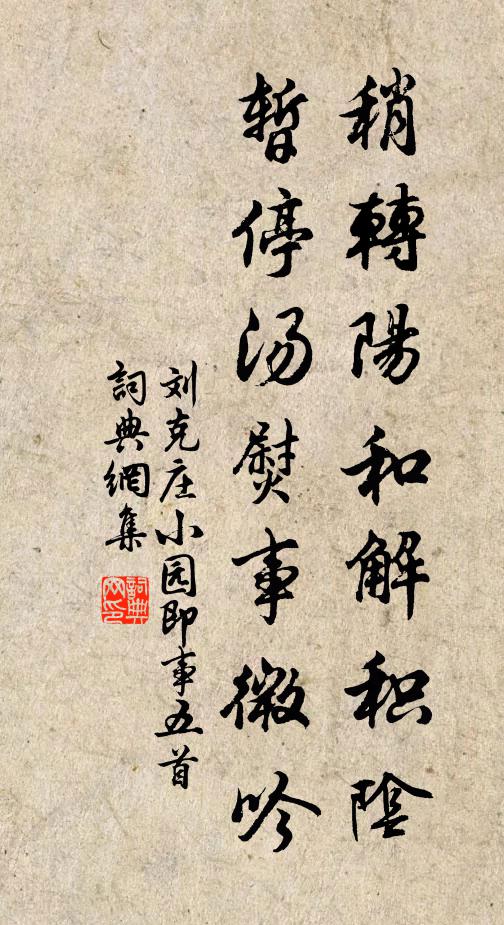 稍轉陽和解积陰
暫停汤熨事微吟
刘克庄小园即事五首
詞典網集
詞典网印